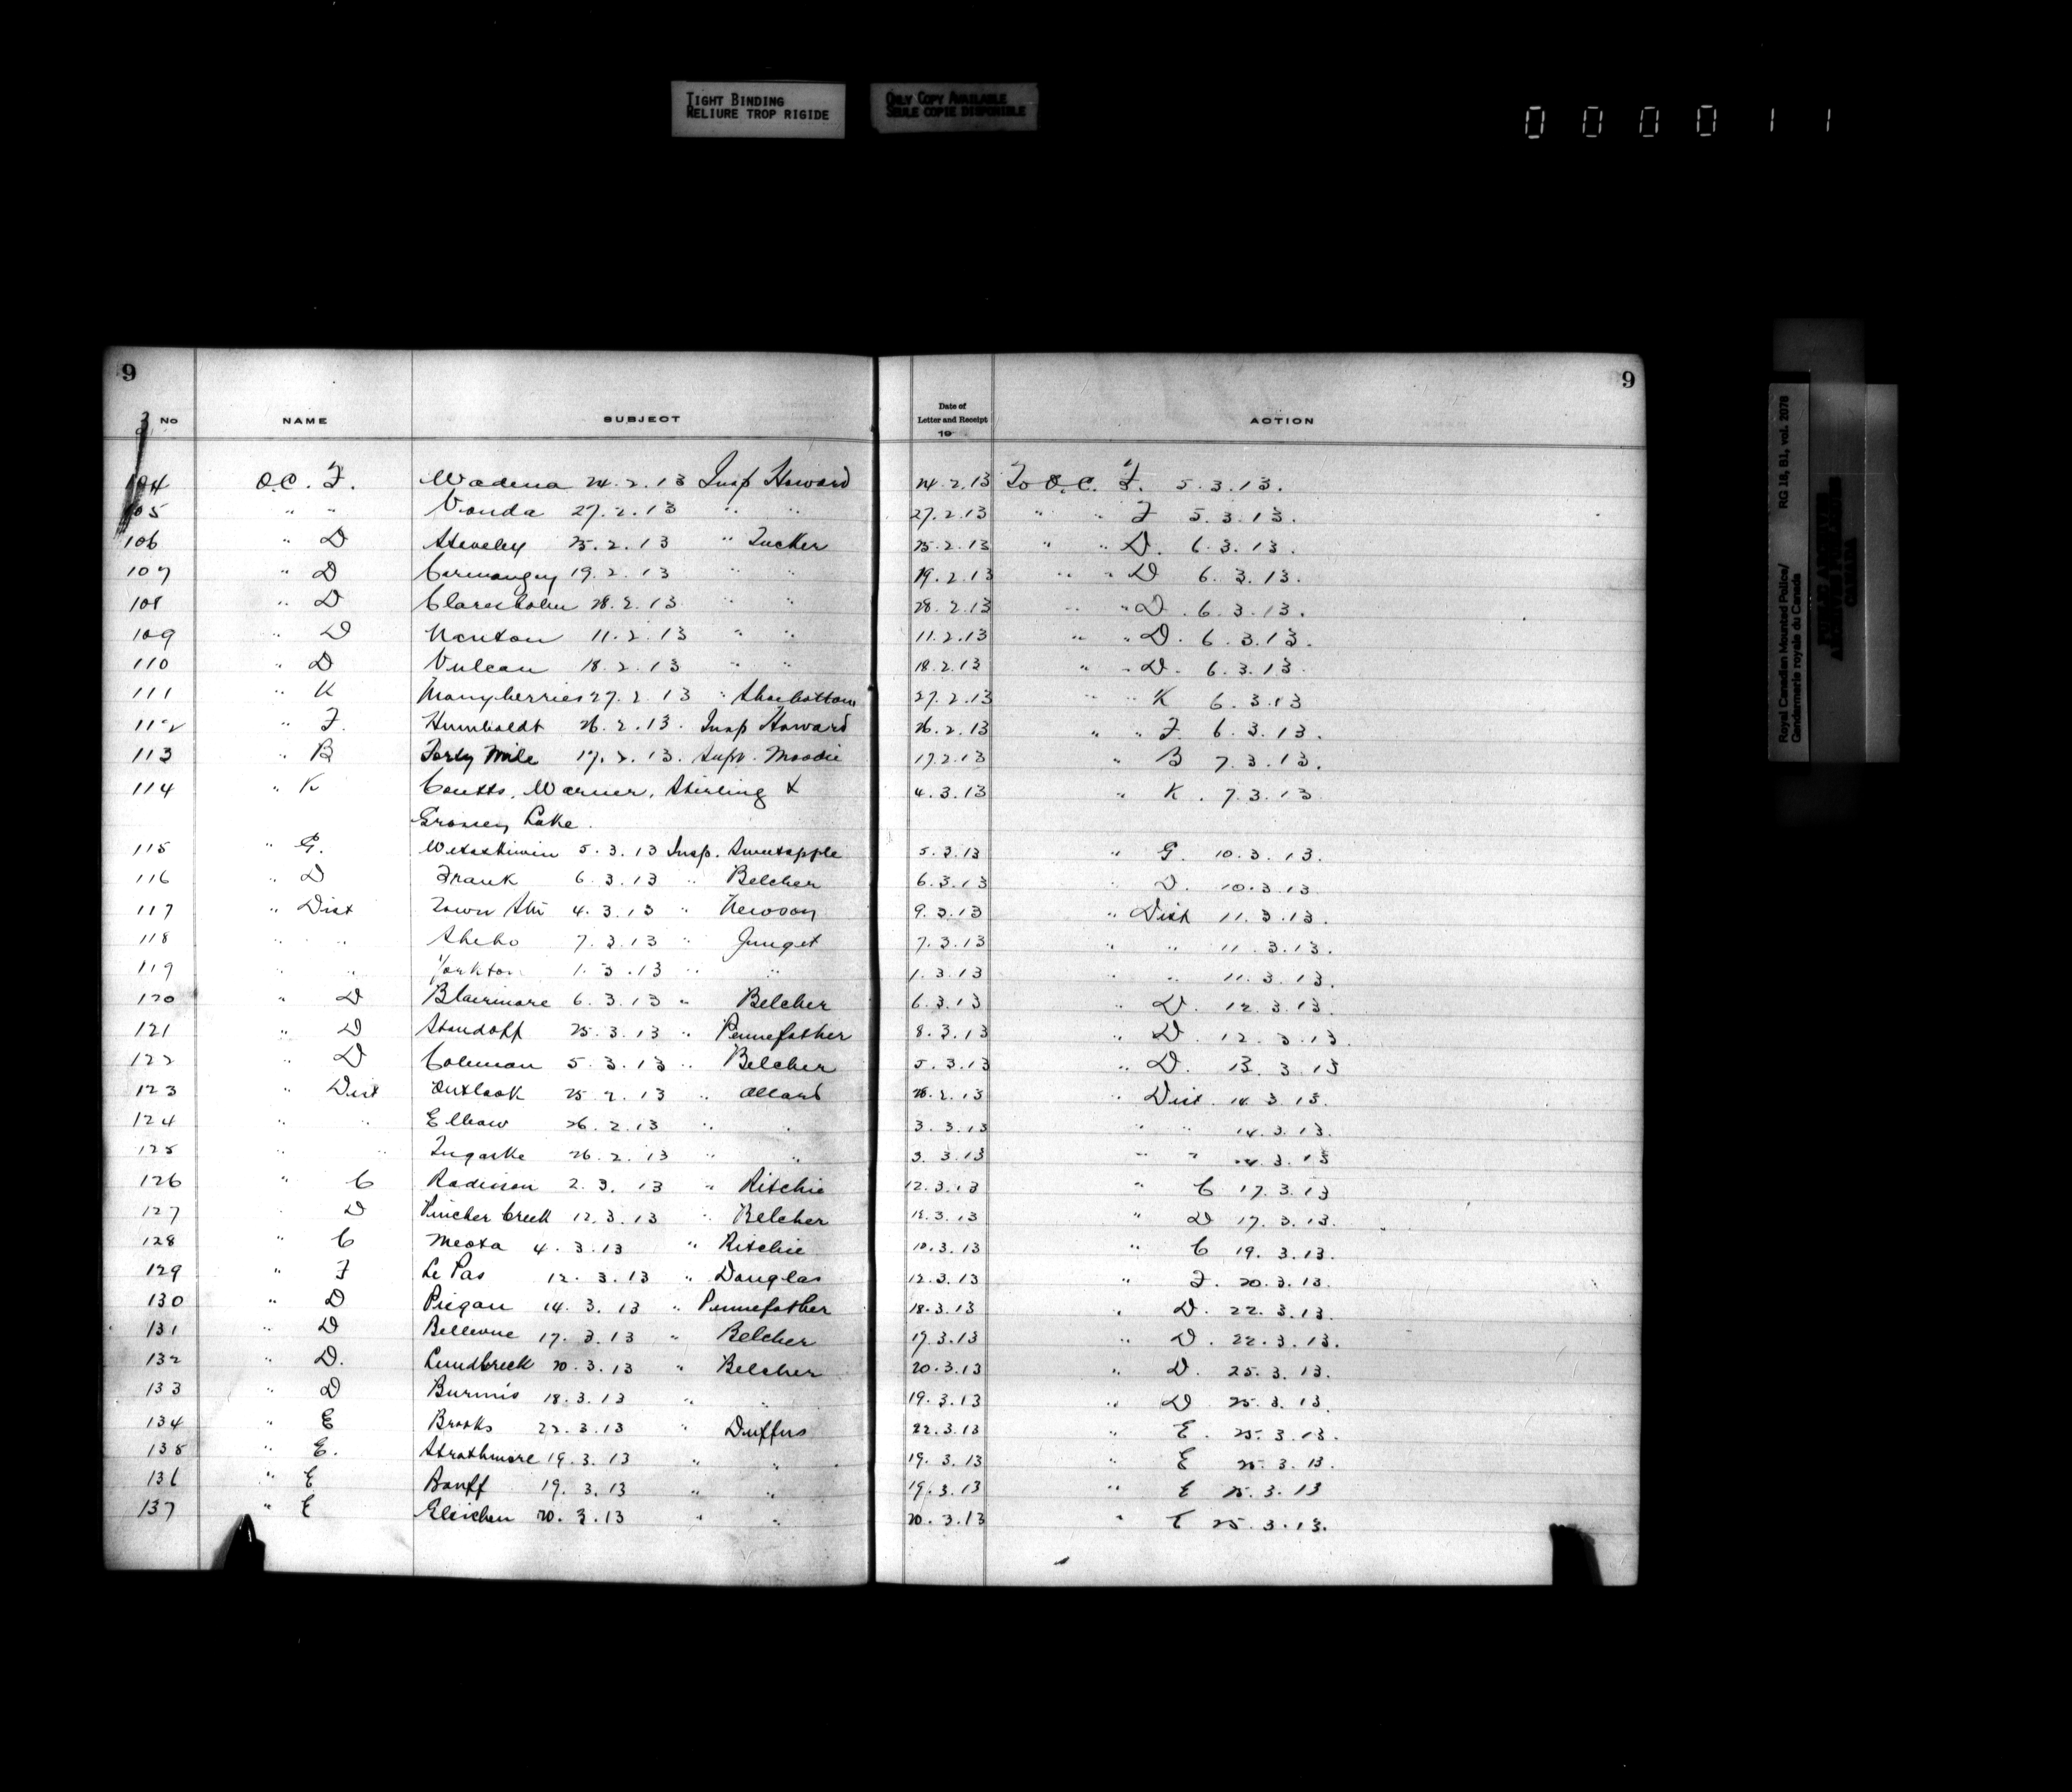 TIGHT BINDING
RELIURE TROP RIGIDE
ONLY COPY AVAILABLE
SEULE COPIE DISPONIBLE
000011
9 9
No NAME SUBJECT Date of Letter and Receipt 19 ACTION
104 O.C. "F. Wadena 24.2.13 Insp Howard 24.2.13 To O.C. "F. 5.3.13.
105 " " Vonda 27.2.13 " " 27.2.13 " " F 5.3.13.
106 " D Staveley 25.2.13 " Tucker 25.2.13 " " D. 6.3.13.
107 " D Carmangay 19.2.13 " " 19.2.13 " " D 6.3.13.
108 " D Claresholm 28.2.13 " " 28.2.13 " " D. 6.3.13.
109 " D Nanton 11.2.13 " " 11.2.13 " " D. 6.3.13.
110 " D Vulcan 18.2.13 " " 18.2.13 " " D. 6.3.13.
111 " K Manyberries 27.2.13 " Shoebottom 27.2.13 " " K 6.3.13
112 " F. Humboldt 26.2.13. Insp Howard 26.2.13 " " F. 6.3.13.
113 " B Forty Mile 17.2.13. Supt. Moodie 17.2.13 " B 7.3.13.
114 " K Coutts, Warner, Stirling & 4.3.13 " K. 7.3.13
Grassy Lake.
115 " G. Wetaskiwin 5.3.13 Insp. Sweetapple 5.3.13 " G. 10.3.13.
116 " D Frank 6.3.13 " Belcher 6.3.13 " D. 10.3.13
117 " Dist Town Stn 4.3.13 " Newson 9.3.13 " Dist 11.3.13.
118 " " Sheho 7.3.13 " Junget 7.3.13 " " 11.3.13.
119 " " Yorkton 1.3.13 " " 1.3.13 " " 11.3.13.
120 " D Blairmore 6.3.13 " Belcher 6.3.13 " D. 12.3.13.
121 " D Standoff 25.3.13 " Pennefather 8.3.13 " D. 12.3.13.
122 " D Coleman 5.3.13 " Belcher 5.3.13 " D. 13.3.13
123 " Dist Outlook 25.2.13 " Allard 28.2.13 " Dist. 14.3.13.
124 " " Elbow 26.2.13 " " 3.3.13 " " 14.3.13.
125 " " Tugaske 26.2.13 " " 3.3.13 " " 14.3.13
126 " C Radisson 2.3.13 " Ritchie 12.3.13 " C 17.3.13
127 " D Pincher Creek 12.3.13 " Belcher 12.3.13 " D 17.3.13.
128 " C Meota 4.3.13 " Ritchie 10.3.13 " C 19.3.13.
129 " F Le Pas 12.3.13 " Douglas 12.3.13 " F. 20.3.13.
130 " D Piegan 14.3.13 " Pennefather 18.3.13 " D. 22.3.13.
131 " D Bellevue 17.3.13 " Belcher 17.3.13 " D. 22.3.13.
132 " D. Lundbreck 20.3.13 " Belcher 20.3.13 " D. 25.3.13.
133 " D Burmis 18.3.13 " " 19.3.13 " D 25.3.13.
134 " E Brooks 22.3.13 " Duffus 22.3.13 " E. 25.3.13.
135 " E. Strathmore 19.3.13 " " 19.3.13 " E 25.3.13.
136 " E Banff 19.3.13 " " 19.3.13 " E 25.3.13
137 " E Gleichen 20.3.13 " " 20.3.13 " E 25.3.13.
Royal Canadian Mounted Police/ RG 18, B1, vol. 2078
Gendarmerie royale du Canada
PUBLIC ARCHIVES
ARCHIVES PUBLIQUES
CANADA